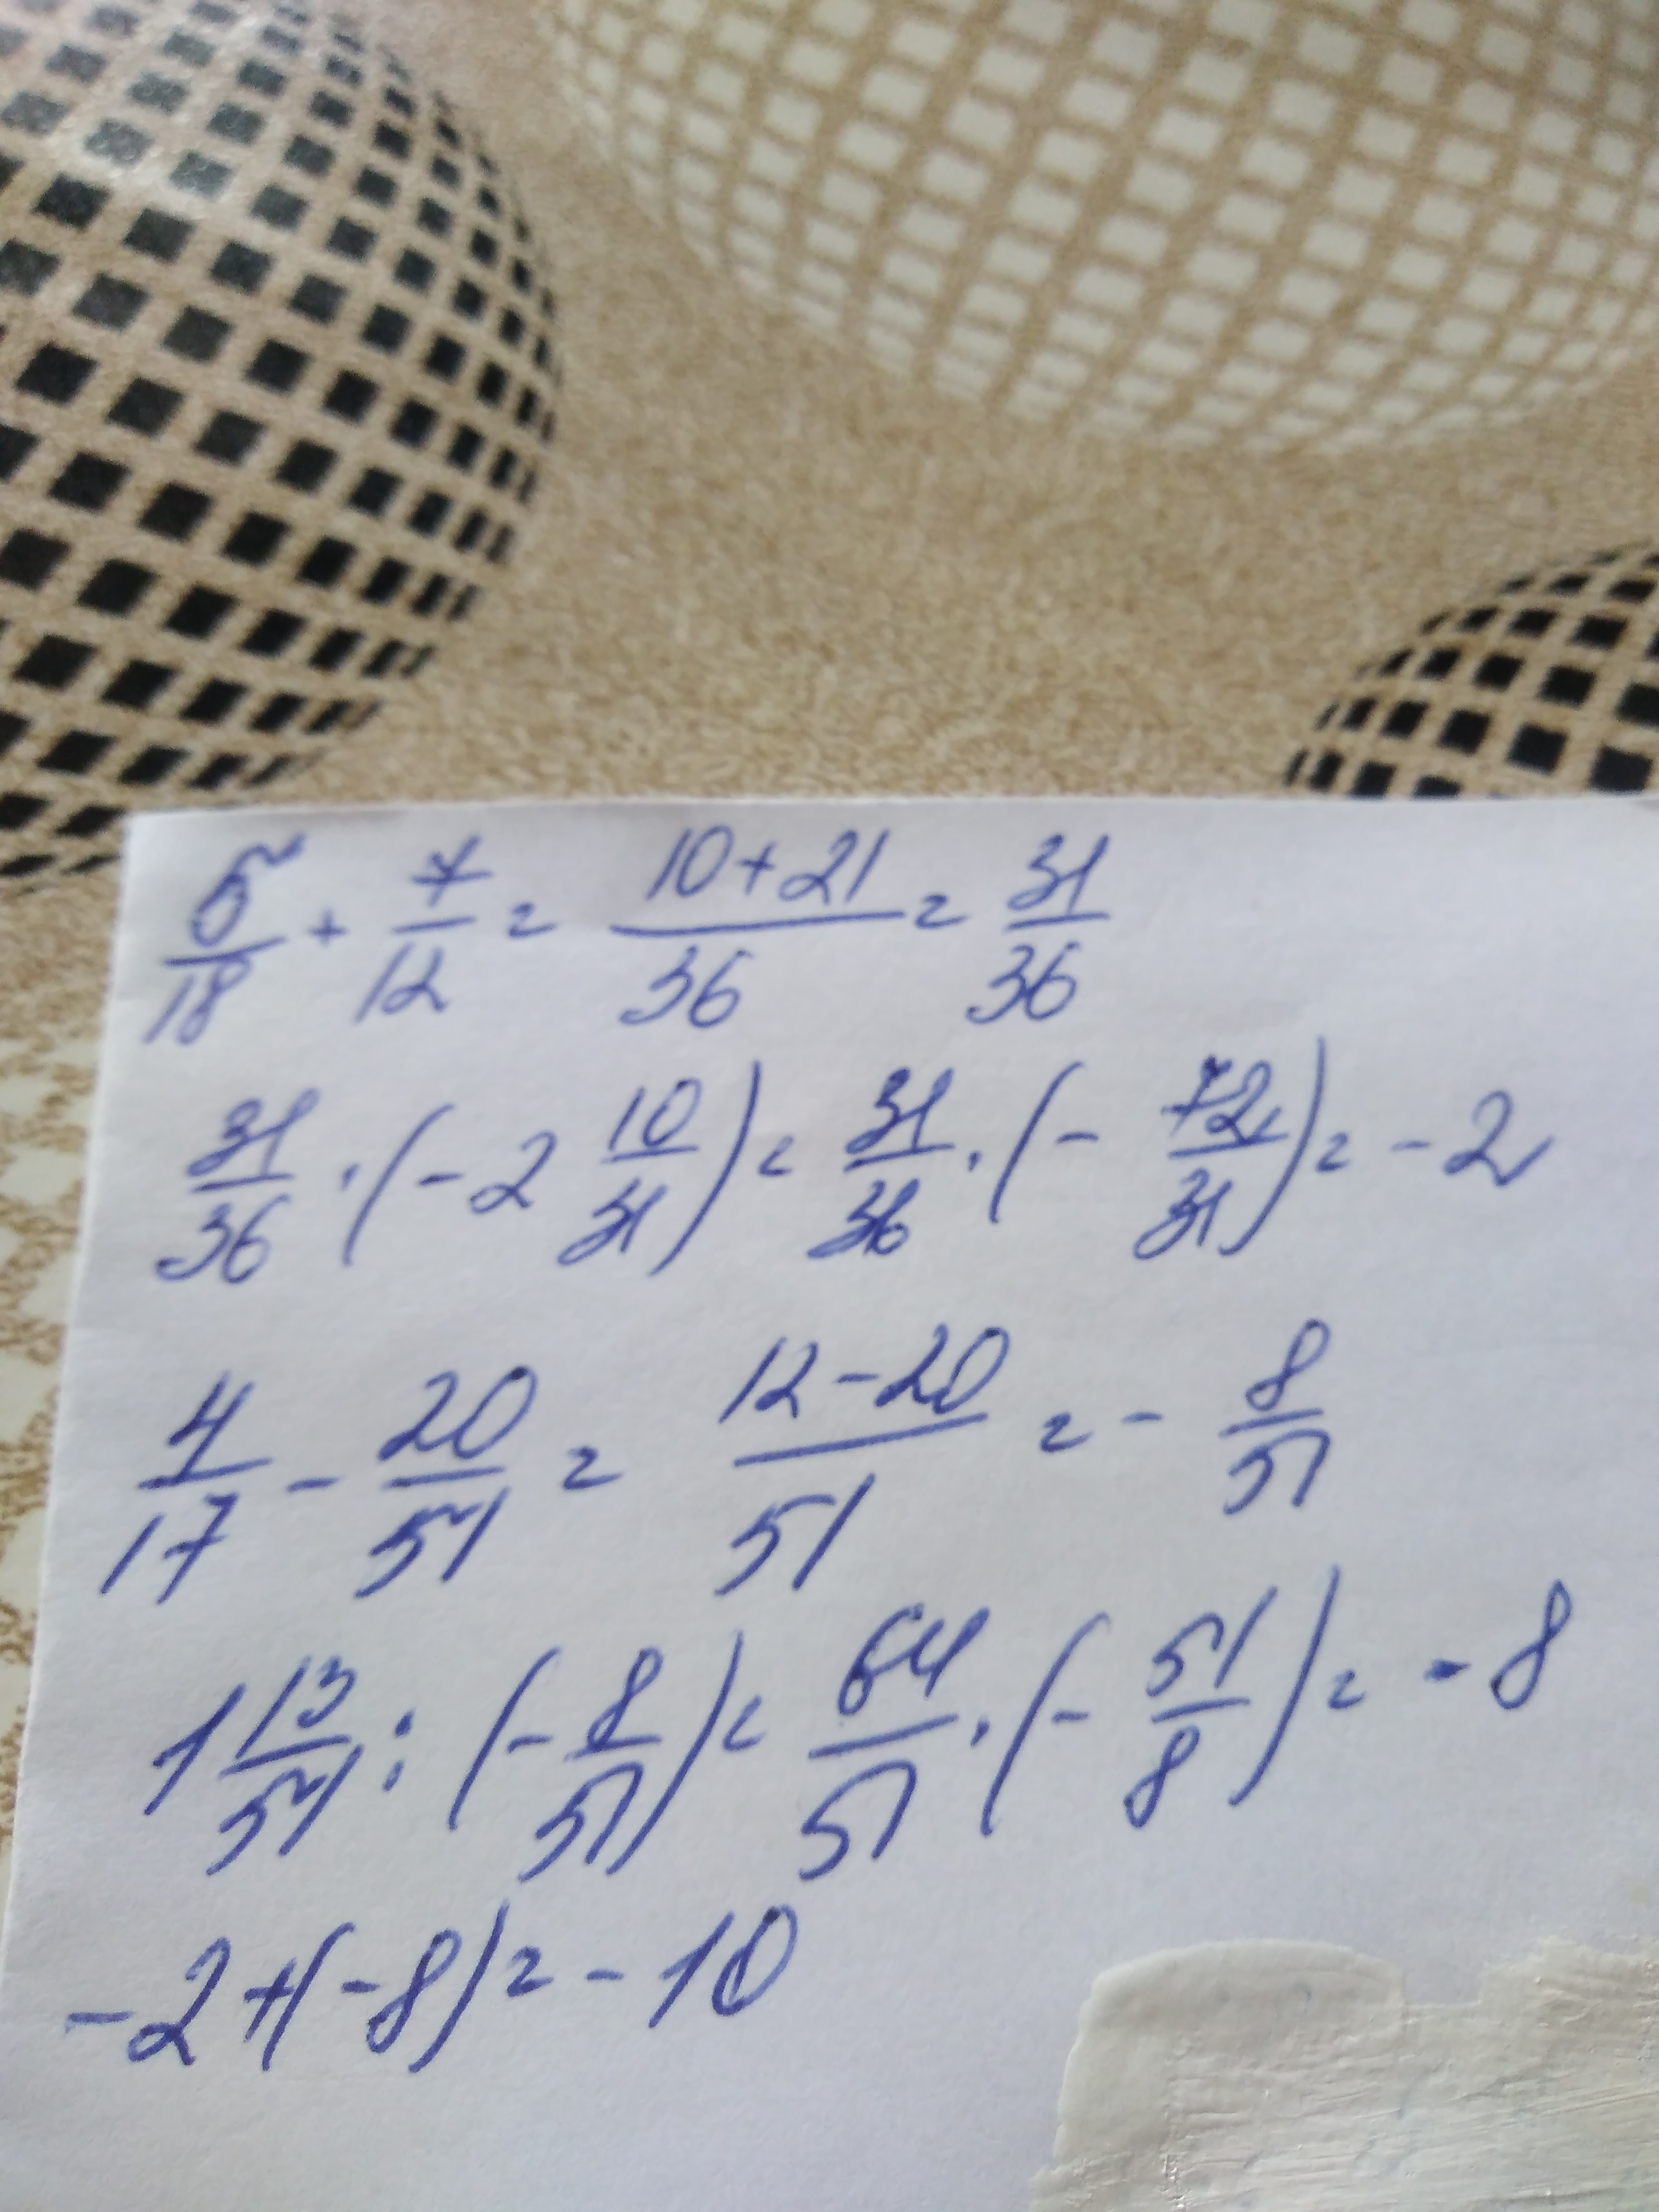 5/18 + 7/12 = (10+21)/36 = 31/36
31/36 · (-2 10/31) = 31/36 · (- 72/31) = -2
4/17 - 20/51 = (12-20)/51 = - 8/51
1 13/51 : (- 8/51) = 64/51 · (- 51/8) = -8
-2+(-8) = -10